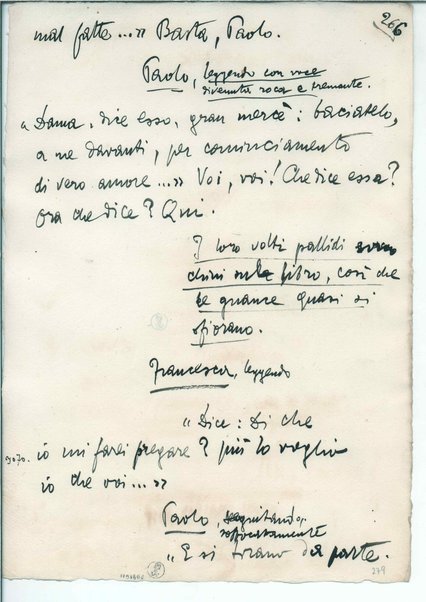 266
mal fatte...» Basta, Paolo.
Paolo, leggendo con voce
divenuta roca e tremante.
«Dama, dice esso, gran mercè: baciatelo,
a me davanti, per cominciamento
di vero amore...» Voi, voi! Che dice essa?
Ora che dice? Qui.
I loro volti pallidi sono
chini sul libro, così che
le guance quasi si
sfiorano.
Francesca, leggendo
«Dice: Di che
io mi farei pregare? più lo voglio
io che voi...»
Paolo, seguitando,
soffocatamente
«E si tirano da parte.
279